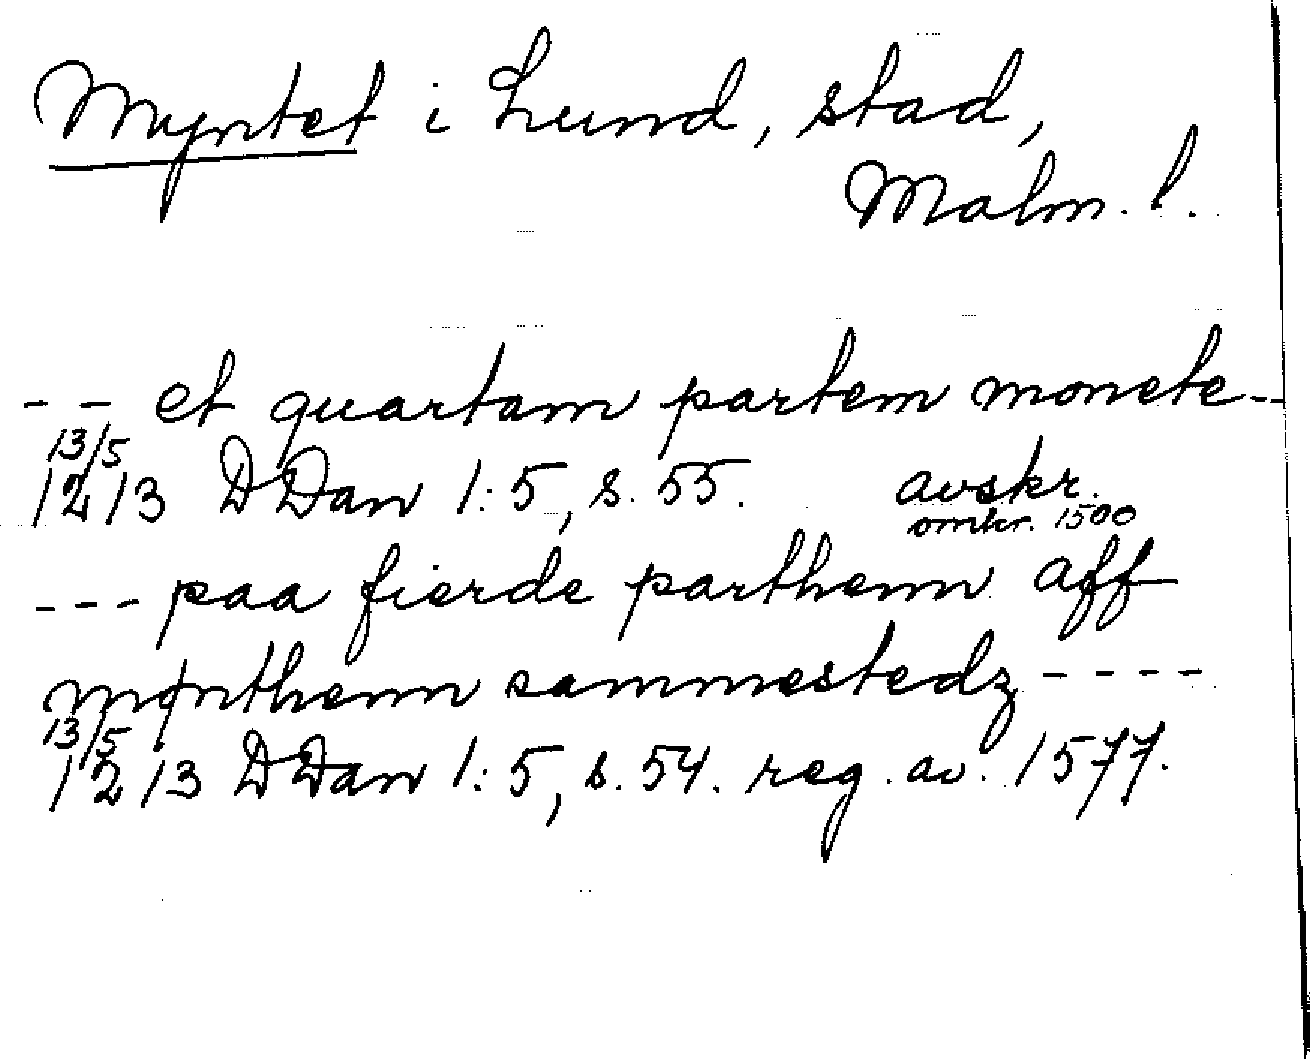 Myntet i Lund, stad,
Malm. l.
- - et quartam partem monete --
13/5
1213 DDan 1:5, s. 55. avskr.
omkr. 1500
--- paa fierde parthenn aff
mønthenn sammestedz ----
13/5
1213 DDan 1:5, s. 54. reg. av. 1577.